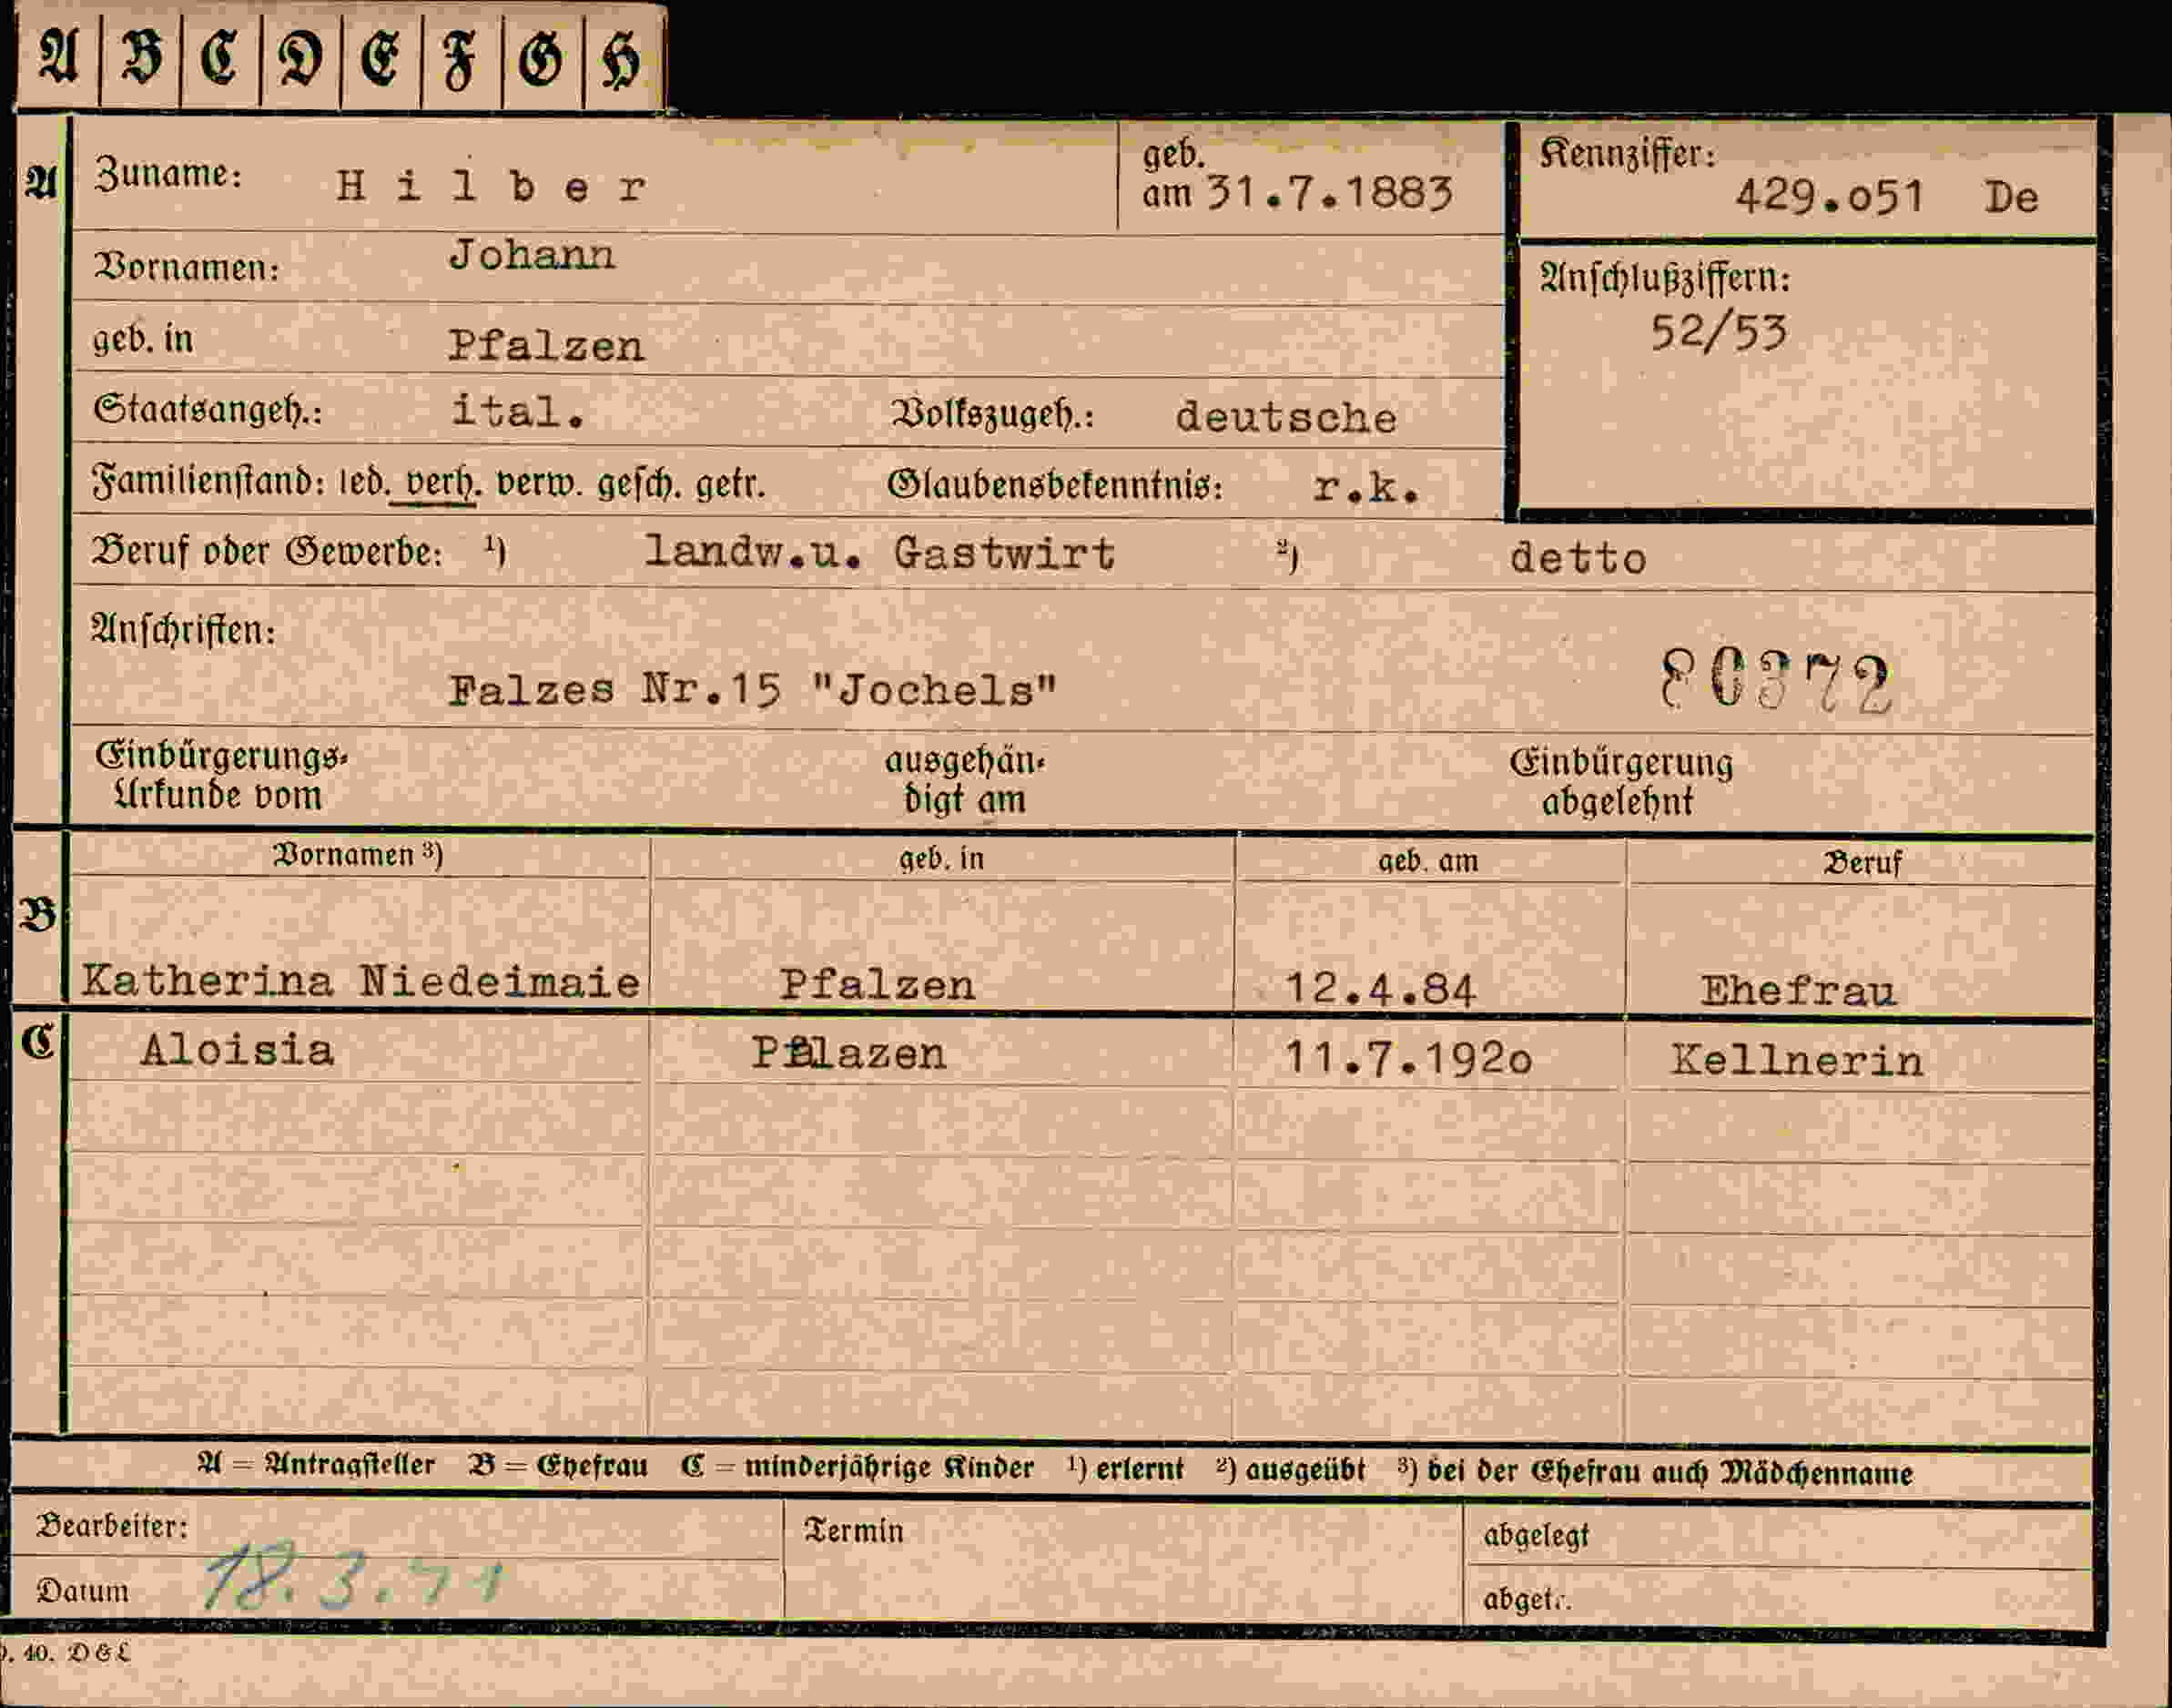 A B C D E F G H
A Zuname: Hilber geb. am 31.7.1883 Kennziffer: 429.o51 De
Vornamen: Johann Anschlußziffern: 52/53
geb. in Pfalzen
Staatsangeh.: ital. Volkszugeh.: deutsche
Familienstand: led. verh. verw. gesch. getr. Glaubensbekenntnis: r.k.
Beruf oder Gewerbe: ¹) landw.u. Gastwirt ²) detto
Anschriften:
Falzes Nr.15 "Jochels" 80372
Einbürgerungs- ausgehän- Einbürgerung
Urkunde vom digt am abgelehnt
Vornamen ³) geb. in geb. am Beruf
B
Katherina Niedeimaie Pfalzen 12.4.84 Ehefrau
C Aloisia 11.7.192o Kellnerin
A = Antragsteller B = Ehefrau C = minderjährige Kinder ¹) erlernt ²) ausgeübt ³) bei der Ehefrau auch Mädchenname
Bearbeiter: Termin abgelegt
Datum 18.3.41 abgetr.
40. DGL